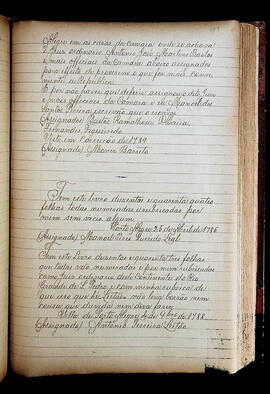 Alegre em as casas da Camara onde se achava
o Juiz ordinario Antonio José Martins Bastos
e mais officiaes da Camara abaixo assignados
para effeito de proverem o que for mais conve
niente a Republica.
E por não haver que deferir assignou o dito Juiz
e mais officiaes da Camara e eu Manoel dos
Santos Pereira escrivão que o escrevi
(Assignados) Bastos Ramalhosa Oliveira
Fernandes, Figueiredo
Visto em correição de 1789
(Assignado) Barreto
Tem este livro duzentas e quarenta e quatro
folhas todas numeradas e rubricadas por
mim sem vicio algum
Porto Alegre 25 de Abril de 1786
(Assignado) Manoel
Tem este Livro duzentas e quarenta e tres folhas
que todas vão numeradas e por mim rubricadas
como Juiz ordinario deste Continente do Rio
Grande de S. Pedro e com minha rubrica de
que uso que he Leitão não leva borrão nem
cousa que duvida nem
Villa de Porto Alegre 4 de 9bro de 1788
(Assignado) Antonio Ferreira Leitão